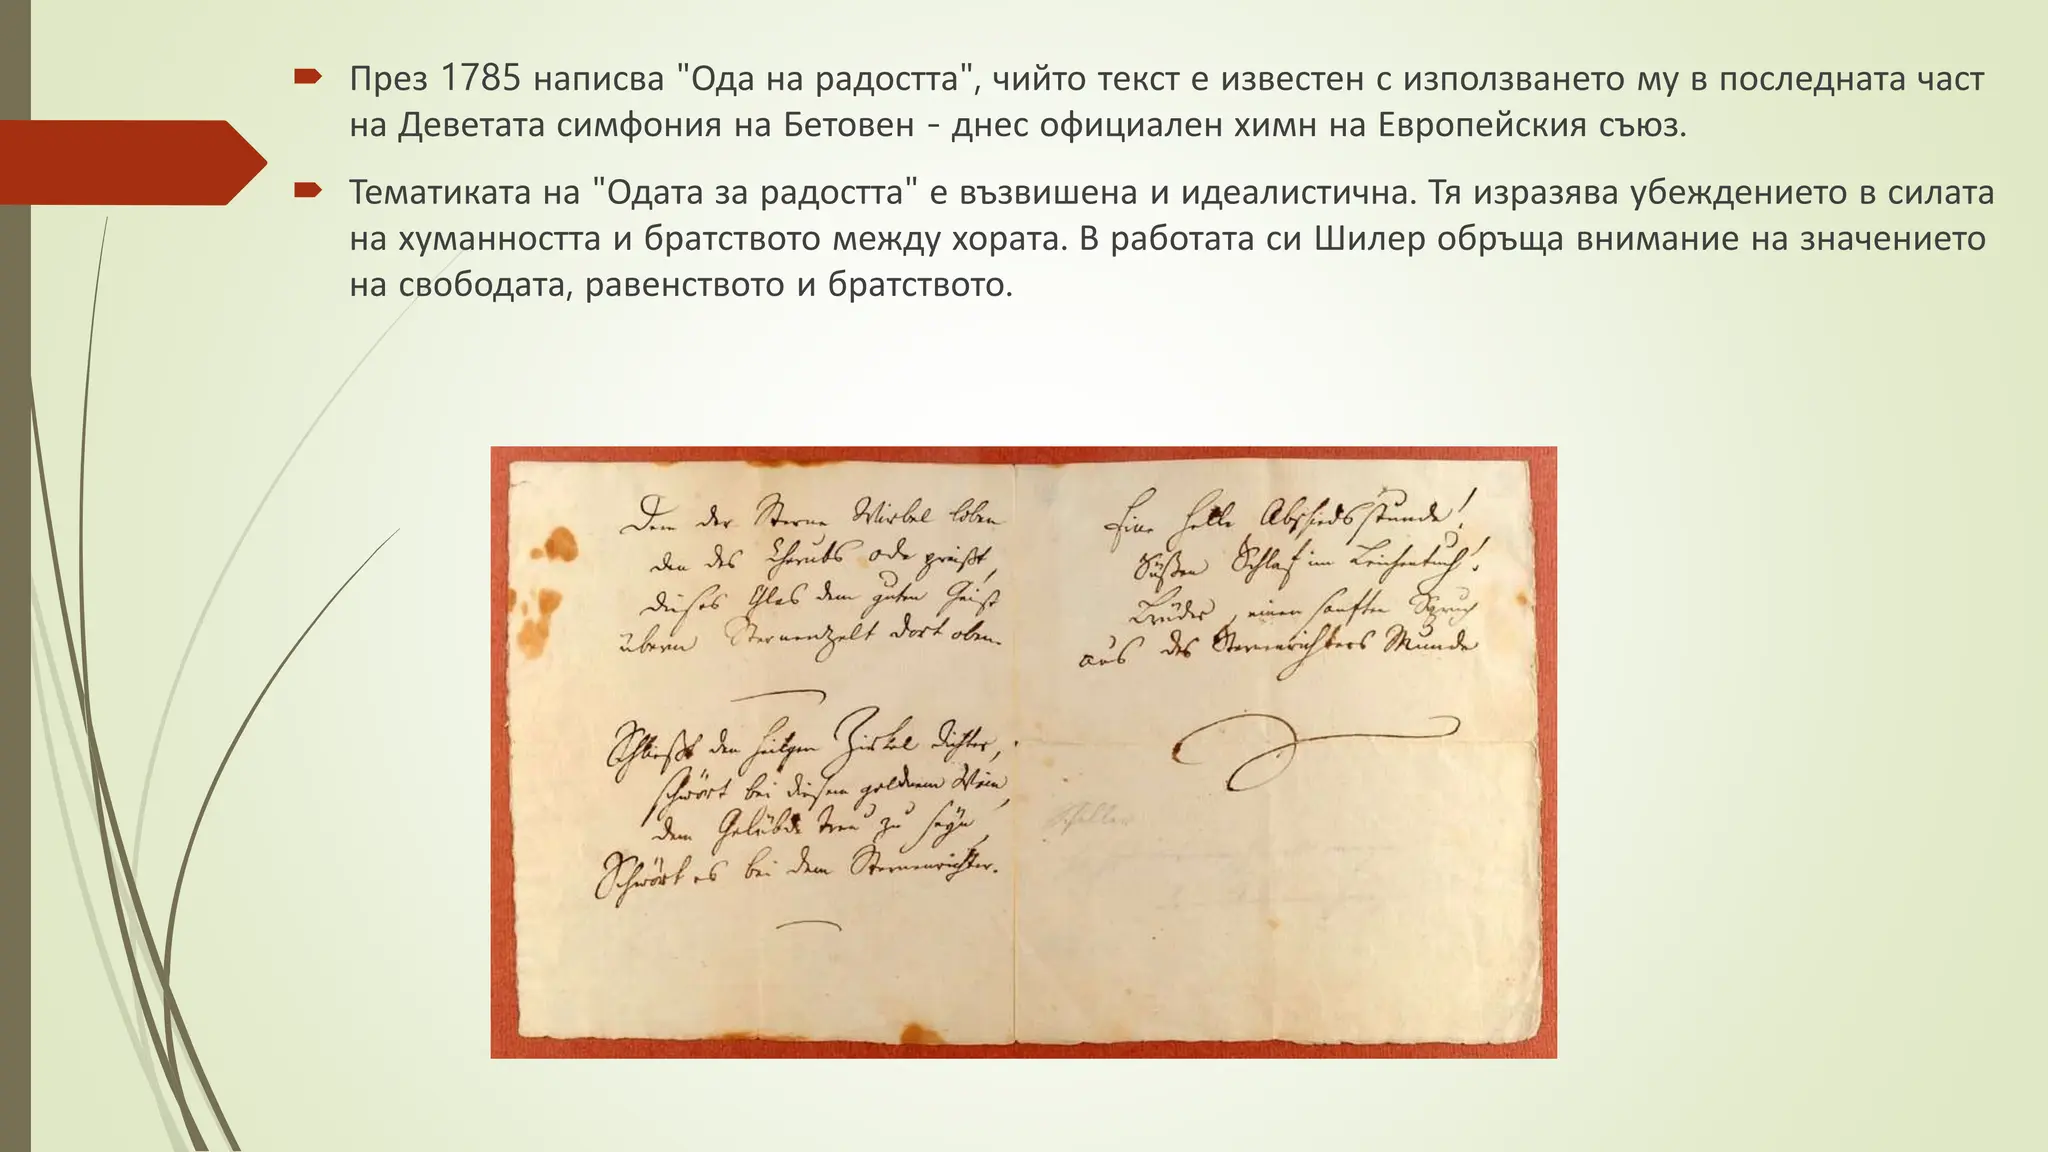 През 1785 написва "Ода на радостта", чийто текст е известен с използването му в последната част
на Деветата симфония на Бетовен - днес официален химн на Европейския съюз.
Тематиката на "Одата за радостта" е възвишена и идеалистична. Тя изразява убеждението в силата
на хуманността и братството между хората. В работата си Шилер обръща внимание на значението
на свободата, равенството и братството.
Den der Sterne Wirbel loben
den des Cherubs ode preißt,
dieses Glas dem guten Geist
übern Sternenzelt dort oben.
Schließt den heilgen Zirkel dichter,
schwört bei diesem goldnem Wein
dem Gelübde treu zu seyn
Schwört es bei dem Sternenrichter.
Eine helle Abschiedsstunde!
Süßen Schlaf im Leichentuch!
Brüder, einen sanften Spruch
aus des Sternenrichters Munde